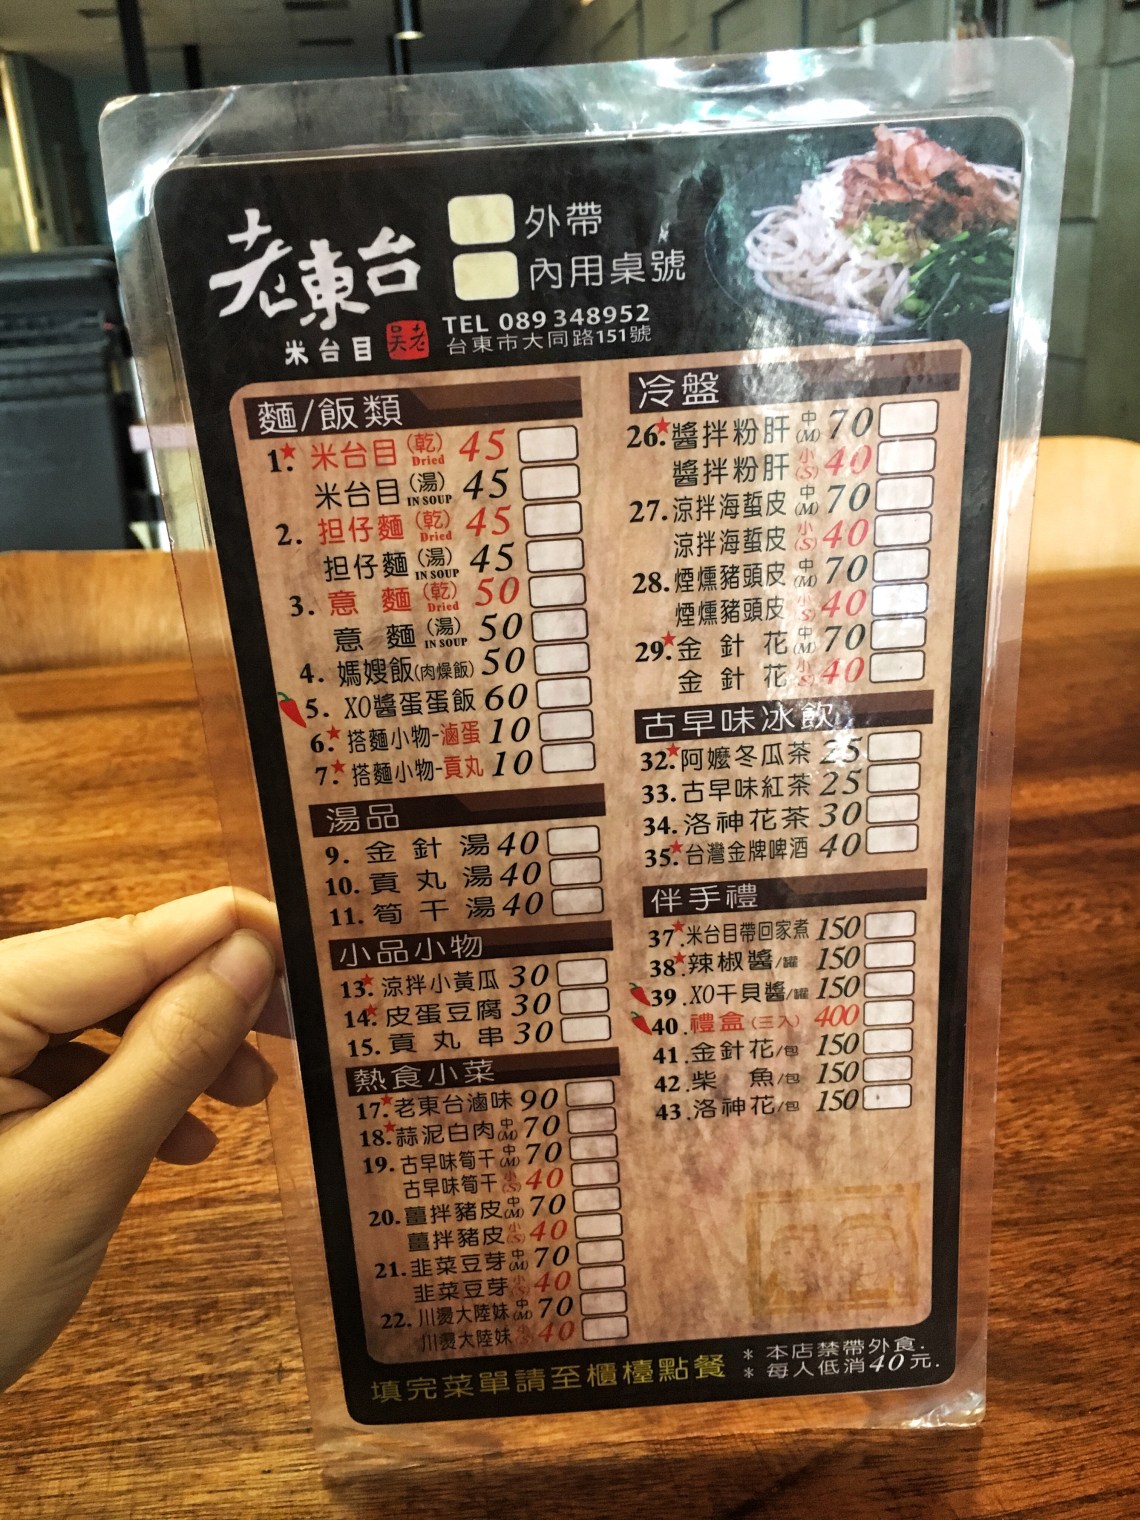 老東台
米台目 吳老
外帶
內用桌號
TEL 089 348952
台東市大同路151號
麵/飯類
1. 米台目(乾) Dried 45
米台目(湯) IN SOUP 45
2. 担仔麵(乾) Dried 45
担仔麵(湯) IN SOUP 45
3. 意 麵(乾) Dried 50
意 麵(湯) IN SOUP 50
4. 媽嫂飯(肉燥飯) 50
5. XO醬蛋蛋飯 60
6. 搭麵小物-滷蛋 10
7. 搭麵小物-貢丸 10
湯品
9. 金針湯 40
10. 貢丸湯 40
11. 筍干湯 40
小品小物
13. 涼拌小黃瓜 30
14. 皮蛋豆腐 30
15. 貢丸串 30
熱食小菜
17. 老東台滷味 90
18. 蒜泥白肉 中(M) 70
19. 古早味筍干 中(M) 70
古早味筍干 小(S) 40
20. 薑拌豬皮 中(M) 70
薑拌豬皮 小(S) 40
21. 韭菜豆芽 中(M) 70
韭菜豆芽 小(S) 40
22. 川燙大陸妹 中(M) 70
川燙大陸妹 小(S) 40
冷盤
26. 醬拌粉肝 中(M) 70
醬拌粉肝 小(S) 40
27. 涼拌海蜇皮 中(M) 70
涼拌海蜇皮 小(S) 40
28. 煙燻豬頭皮 中(M) 70
煙燻豬頭皮 小(S) 40
29. 金針花 中(M) 70
金針花 小(S) 40
古早味冰飲
32. 阿嬤冬瓜茶 25
33. 古早味紅茶 25
34. 洛神花茶 30
35. 台灣金牌啤酒 40
伴手禮
37. 米台目帶回家煮 150
38. 辣椒醬/罐 150
39. XO干貝醬/罐 150
40. 禮盒(三入) 400
41. 金針花/包 150
42. 柴 魚/包 150
43. 洛神花/包 150
填完菜單請至櫃檯點餐
* 本店禁帶外食.
* 每人低消40元.